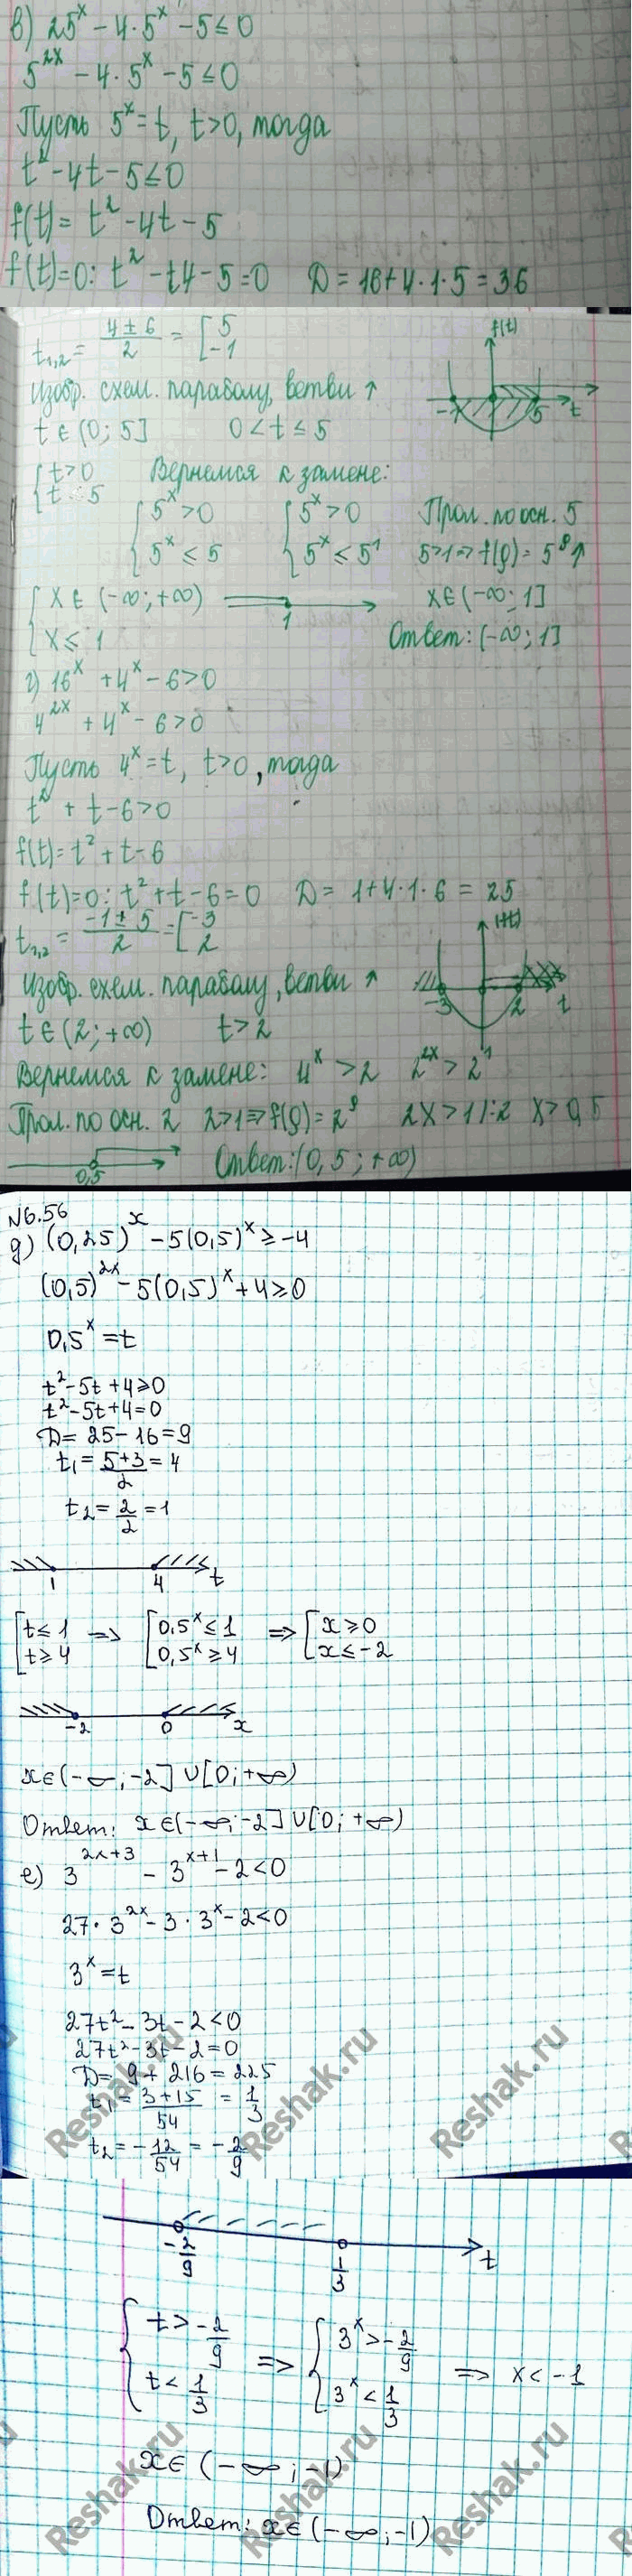 в) 25ˣ - 4·5ˣ - 5 ≤ 0
5²ˣ - 4·5ˣ - 5 ≤ 0
Пусть 5ˣ = t, t>0, тогда
t² - 4t - 5 ≤ 0
f(t) = t² - 4t - 5
f(t)=0: t² - t4 - 5 = 0 D = 16+4·1·5 = 36
t₁,₂ = (4 ± 6)/2 = [5 -1
f(t)
Изобр. схем. параболу, ветви ↑
-1 5 t
t ∈ (0; 5] 0 < t ≤ 5
{t>0 Вернемся к замене:
t ≤ 5
{5ˣ>0 {5ˣ>0 Прол. по осн. 5
5ˣ ≤ 5 5ˣ ≤ 5¹ 5>1 => f(g) = 5ᵍ↑
{x ∈ (-∞; +∞) x∈(-∞; 1]
x ≤ 1 1 Ответ: (-∞; 1]
г) 16ˣ + 4ˣ - 6 > 0
4²ˣ + 4ˣ - 6 > 0
Пусть 4ˣ = t, t>0, тогда
t² + t - 6 > 0
f(t) = t² + t - 6
f(t)=0: t² + t - 6 = 0 D = 1+4·1·6 = 25
t₁,₂ = (-1 ± 5)/2 = [-3 2
f(t)
Изобр. схем. параболу, ветви ↑
-3 2 t
t ∈ (2; +∞) t > 2
Вернемся к замене: 4ˣ > 2 2²ˣ > 2¹
Прол. по осн. 2 2>1 => f(g) = 2ᵍ 2x > 1 |:2 x > 0,5
0,5 Ответ: (0,5; +∞)
N6.56
д) (0,25)ˣ - 5(0,5)ˣ ≥ -4
(0,5)²ˣ - 5(0,5)ˣ + 4 ≥ 0
0,5ˣ = t
t² - 5t + 4 ≥ 0
t² - 5t + 4 = 0
D = 25 - 16 = 9
t₁ = (5+3)/2 = 4
t₂ = 2/2 = 1
1 4 t
[t ≤ 1 => [0,5ˣ ≤ 1 => [x ≥ 0
t ≥ 4 0,5ˣ ≥ 4 x ≤ -2
-2 0 x
x∈(-∞; -2] ∪ [0; +∞)
Ответ: x∈(-∞; -2] ∪ [0; +∞)
е) 3²ˣ⁺³ - 3ˣ⁺¹ - 2 < 0
27·3²ˣ - 3·3ˣ - 2 < 0
3ˣ = t
27t² - 3t - 2 < 0
27t² - 3t - 2 = 0
D = 9 + 216 = 225
t₁ = (3+15)/54 = 1/3
t₂ = -12/54 = -2/9
Reshak.ru Reshak.ru Reshak.ru
-2/9 1/3 t
{t > -2/9 => {3ˣ > -2/9 => x < -1
t < 1/3 3ˣ < 1/3
x∈(-∞; -1)
Ответ: x∈(-∞; -1)
Reshak.ru Reshak.ru Reshak.ru